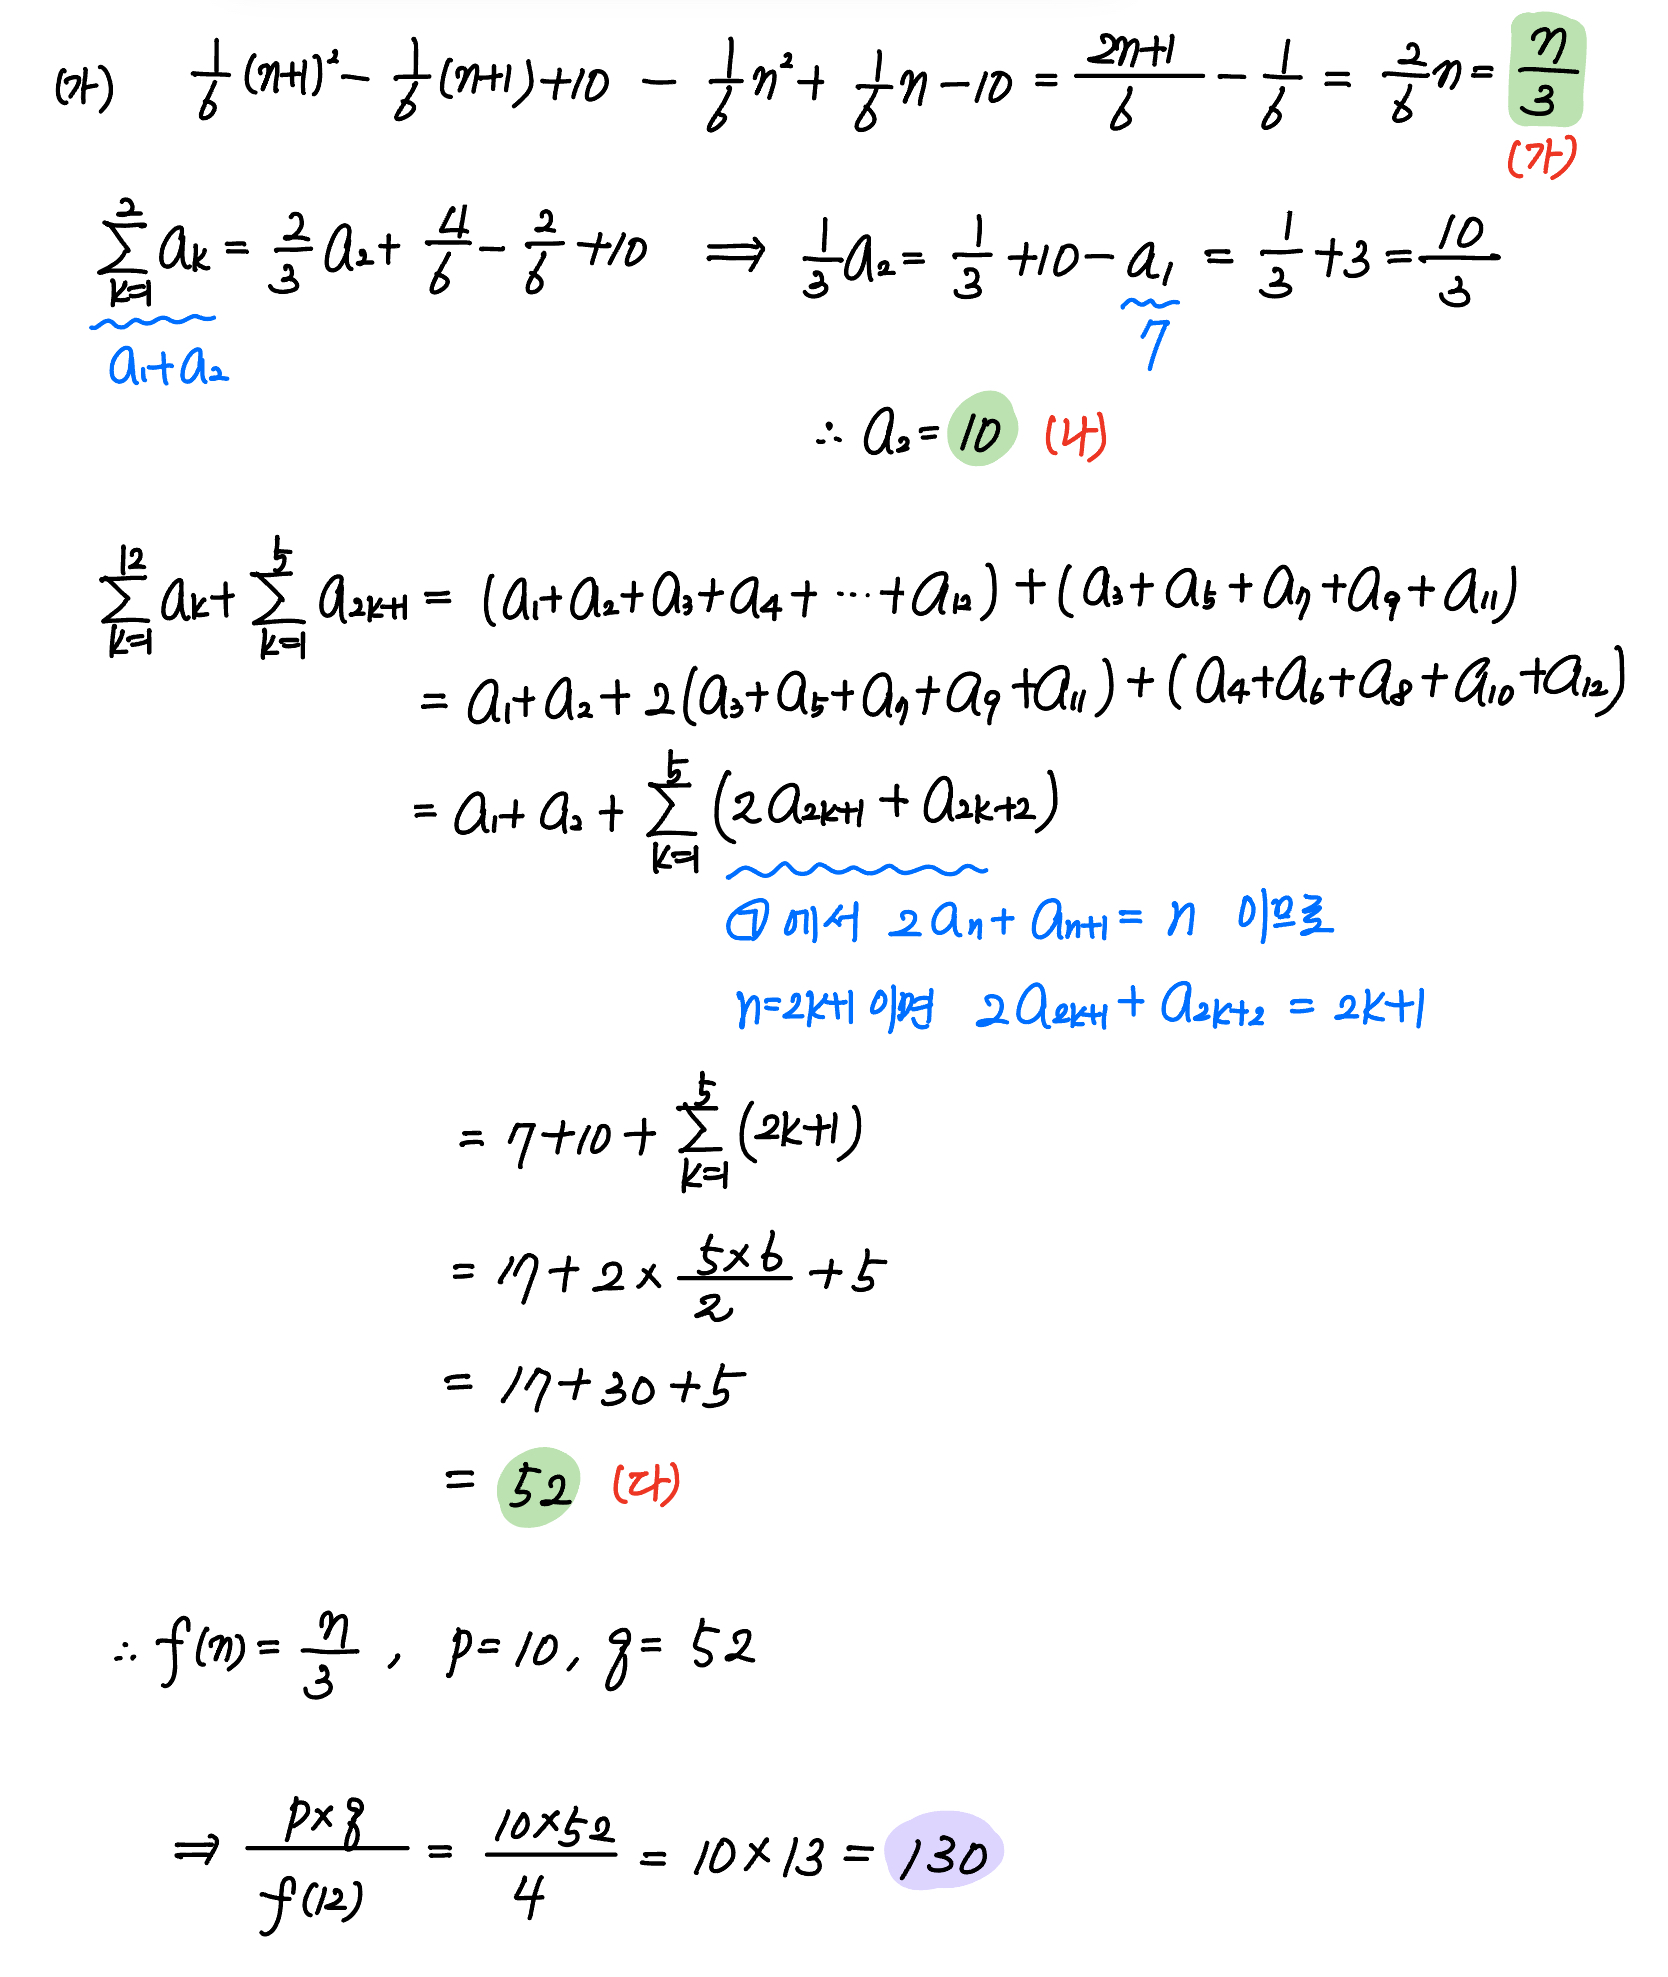 (가) 1/6 (n+1)² - 1/6 (n+1) + 10 - 1/6 n² + 1/6 n - 10 = (2n+1)/6 - 1/6 = 2/6 n = n/3
(가)
∑_{k=1}^{2} a_k = 2/3 a_2 + 4/6 - 2/6 + 10 ⟹ 1/3 a_2 = 1/3 + 10 - a_1 = 1/3 + 3 = 10/3
a_1 + a_2
7
∴ a_2 = 10 (나)
∑_{k=1}^{12} a_k + ∑_{k=1}^{5} a_{2k+1} = (a_1 + a_2 + a_3 + a_4 + ⋯ + a_{12}) + (a_3 + a_5 + a_7 + a_9 + a_{11})
= a_1 + a_2 + 2(a_3 + a_5 + a_7 + a_9 + a_{11}) + (a_4 + a_6 + a_8 + a_{10} + a_{12})
= a_1 + a_2 + ∑_{k=1}^{5} (2a_{2k+1} + a_{2k+2})
㉠에서 2a_n + a_{n+1} = n 이므로
n=2k+1 이면 2a_{2k+1} + a_{2k+2} = 2k+1
= 7 + 10 + ∑_{k=1}^{5} (2k+1)
= 17 + 2 × (5×6)/2 + 5
= 17 + 30 + 5
= 52 (다)
∴ f(n) = n/3 , p = 10, q = 52
⟹ (p×q)/f(12) = (10×52)/4 = 10 × 13 = 130